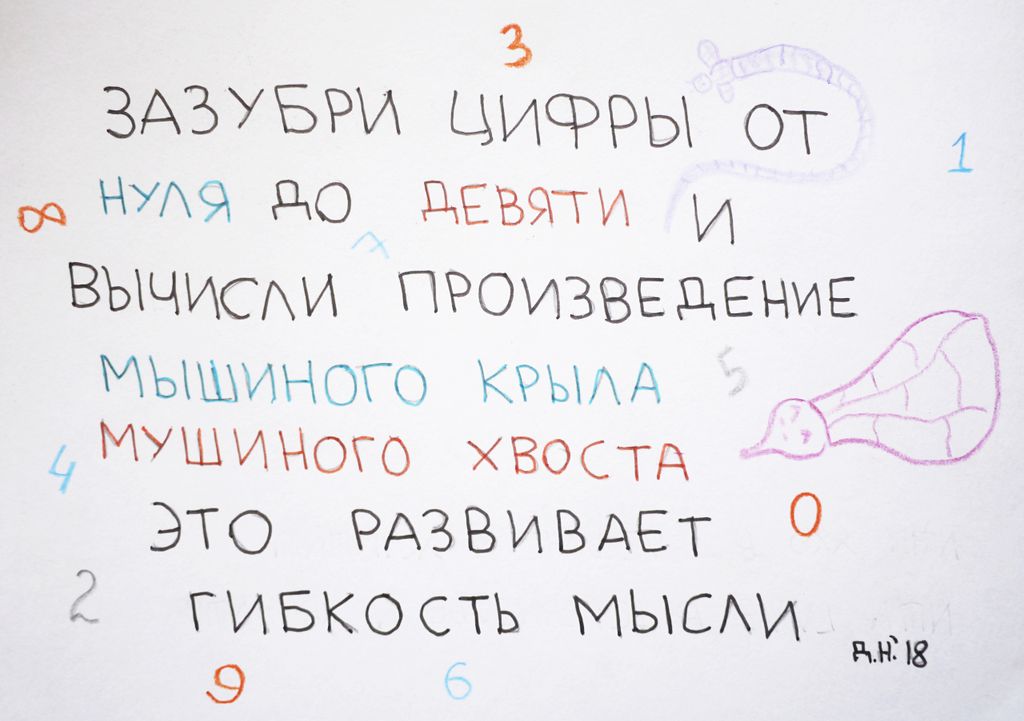 3
ЗАЗУБРИ ЦИФРЫ ОТ
1
НУЛЯ ДО ДЕВЯТИ И
8
7
ВЫЧИСЛИ ПРОИЗВЕДЕНИЕ
МЫШИНОГО КРЫЛА
5
МУШИНОГО ХВОСТА
4
0
ЭТО РАЗВИВАЕТ
2
ГИБКОСТЬ МЫСЛИ
Д.Н.'18
9
6